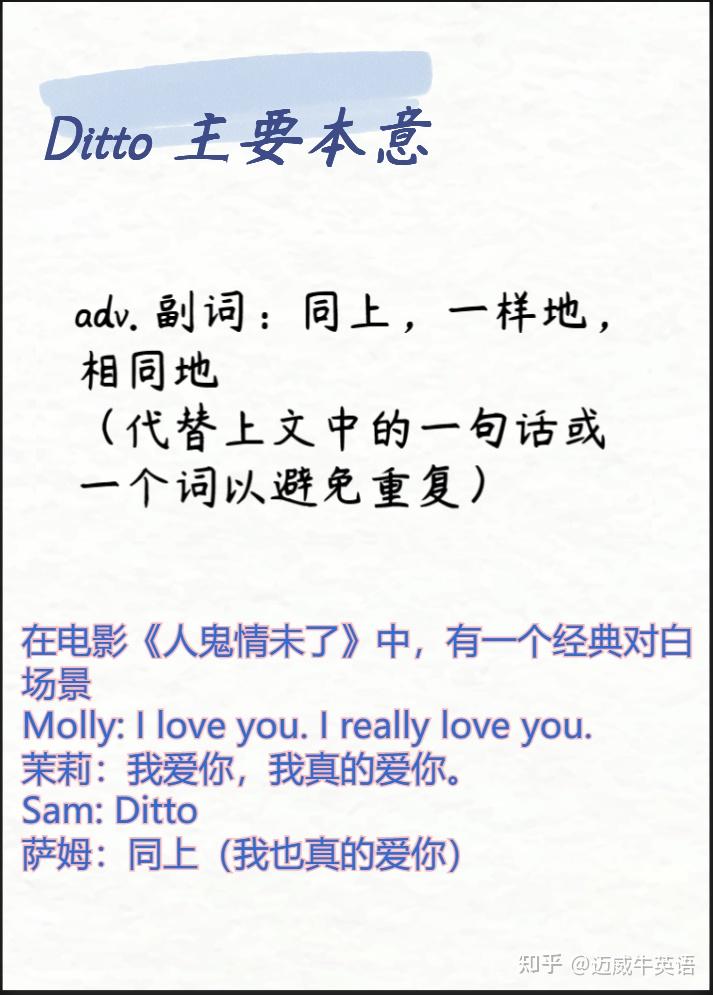 Ditto 主要本意
adv. 副词：同上，一样地，
相同地
（代替上文中的一句话或
一个词以避免重复）
在电影《人鬼情未了》中，有一个经典对白
场景
Molly: I love you. I really love you.
茉莉：我爱你，我真的爱你。
Sam: Ditto
萨姆：同上（我也真的爱你）
知乎 @迈威牛英语